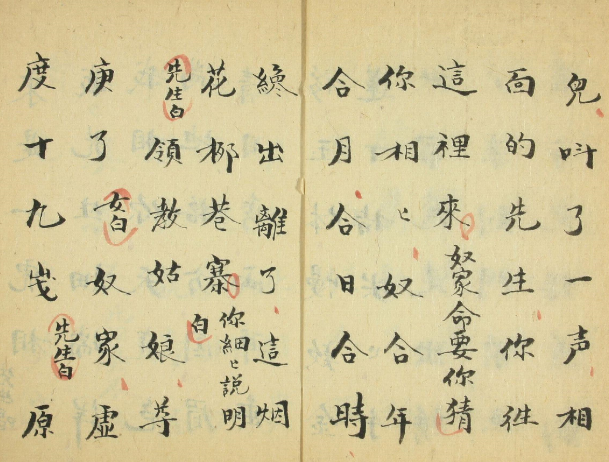 兒叫了一声相
面的先生你往
這裡來奴家命要你猜
你相〻奴合年
合月合日合時
纔出離了這烟
花柳巷寨你細〻説明白
先生白領教姑娘尊
庚了女白奴家虛
度十九歲先生白原